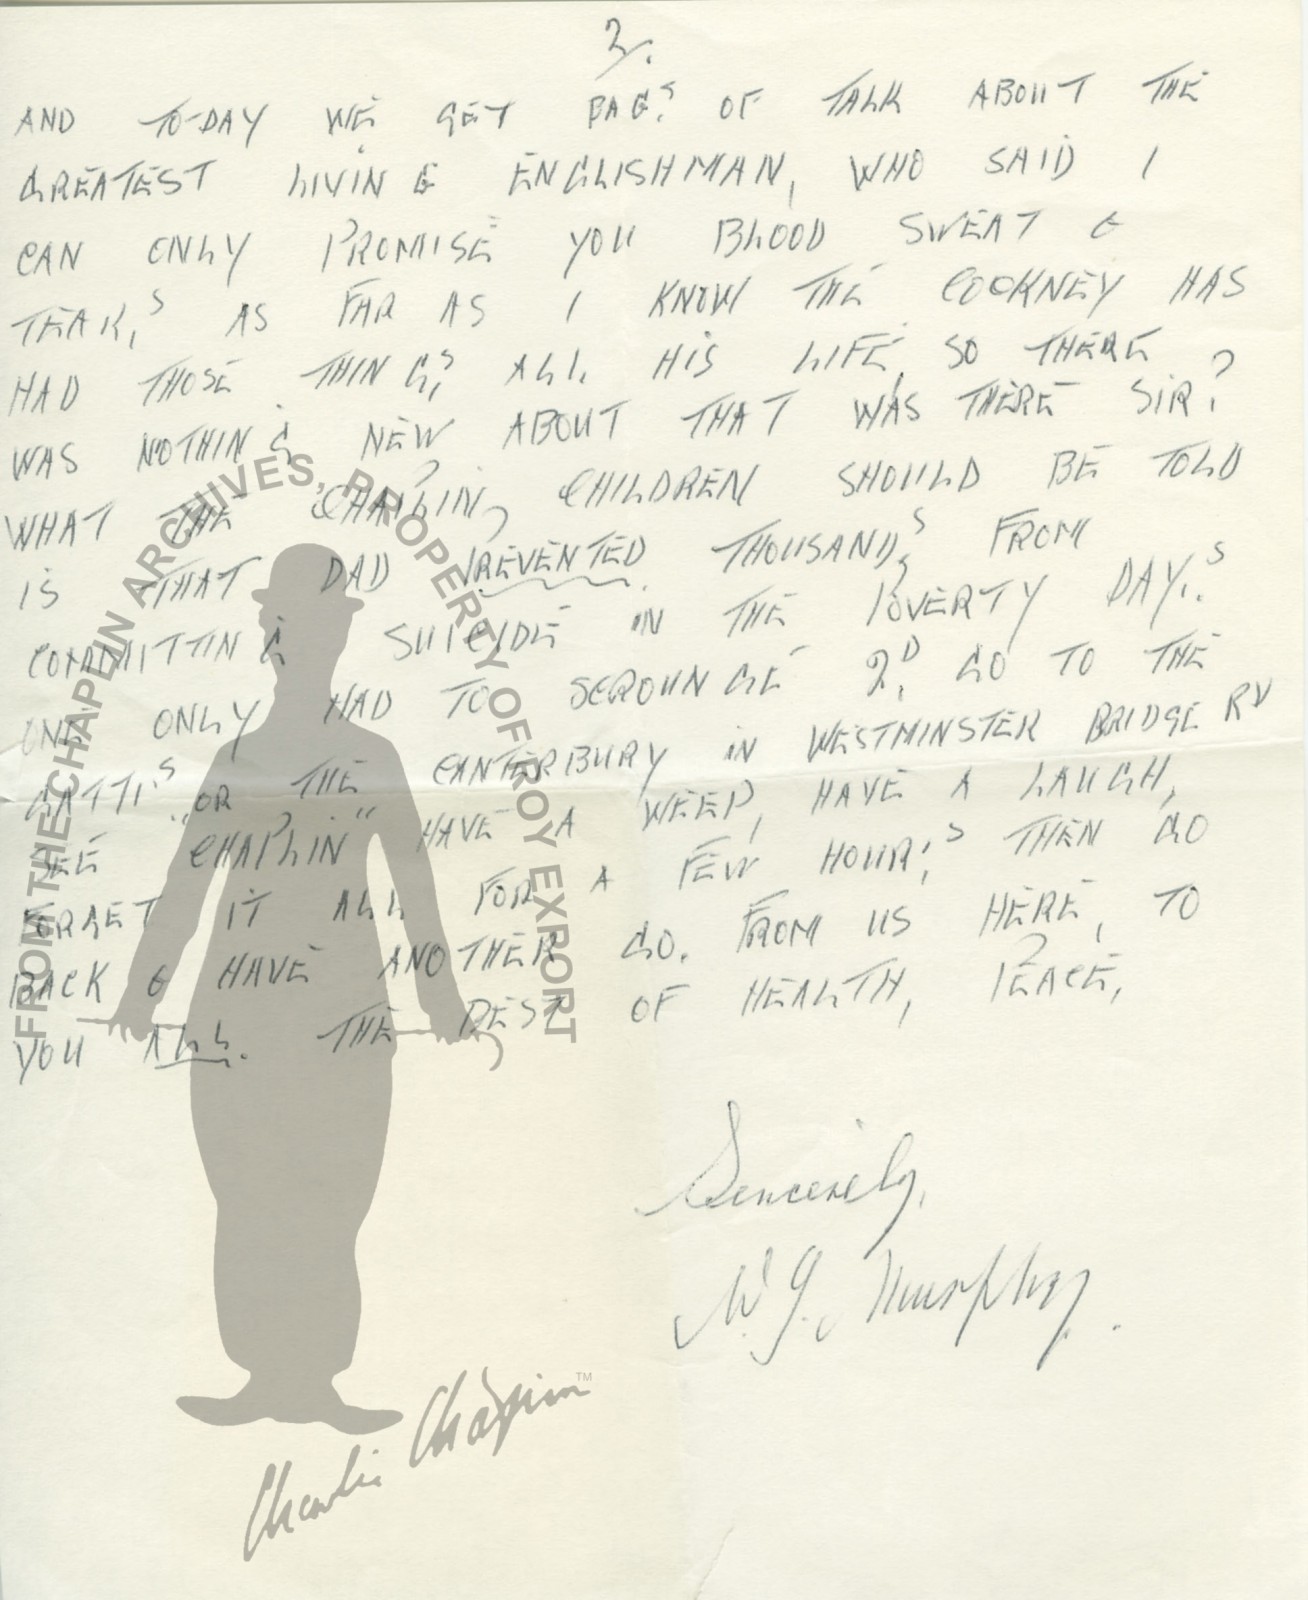 2.
AND TO-DAY WE GET BAG.S OF TALK ABOUT THE
GREATEST LIVING ENGLISHMAN, WHO SAID I
CAN ONLY PROMISE YOU BLOOD SWEAT &
TEAR,S AS FAR AS I KNOW THE COCKNEY HAS
HAD THOSE THING,S ALL HIS LIFE, SO THERE
WAS NOTHING NEW ABOUT THAT WAS THERE SIR?
WHAT THE CHAPLIN, CHILDREN SHOULD BE TOLD
IS THAT DAD PREVENTED THOUSAND,S FROM
COMMITTING SUICIDE IN THE POVERTY DAY.S
ONE ONLY HAD TO SCROUNGE 2D. GO TO THE
GATTI,S OR THE CANTERBURY IN WESTMINSTER BRIDGE RD
SEE "CHAPLIN" HAVE A WEEP, HAVE A LAUGH,
FORGET IT ALL FOR A FEW HOUR,S THEN GO
BACK & HAVE ANOTHER GO. FROM US HERE, TO
YOU ALL. THE BEST OF HEALTH, PEACE,
Sincerely,
W. J. Murphy.
FROM THE CHAPLIN ARCHIVES, PROPERTY OF ROY EXPORT
Charlie Chaplin™